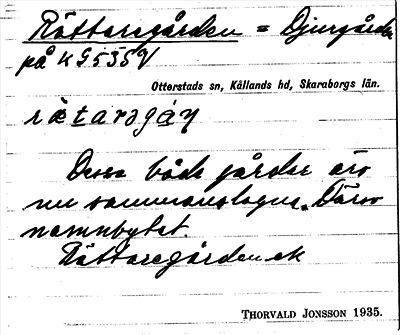 Rättaregården = Djurgården
på KG535V
Otterstads sn, Kållands hd, Skaraborgs län.
rätarəgáṇ
Dessa både gårdar äro
nu sammanslagna. Därav
namnbytet.
Rättaregården ek
THORVALD JONSSON 1935.